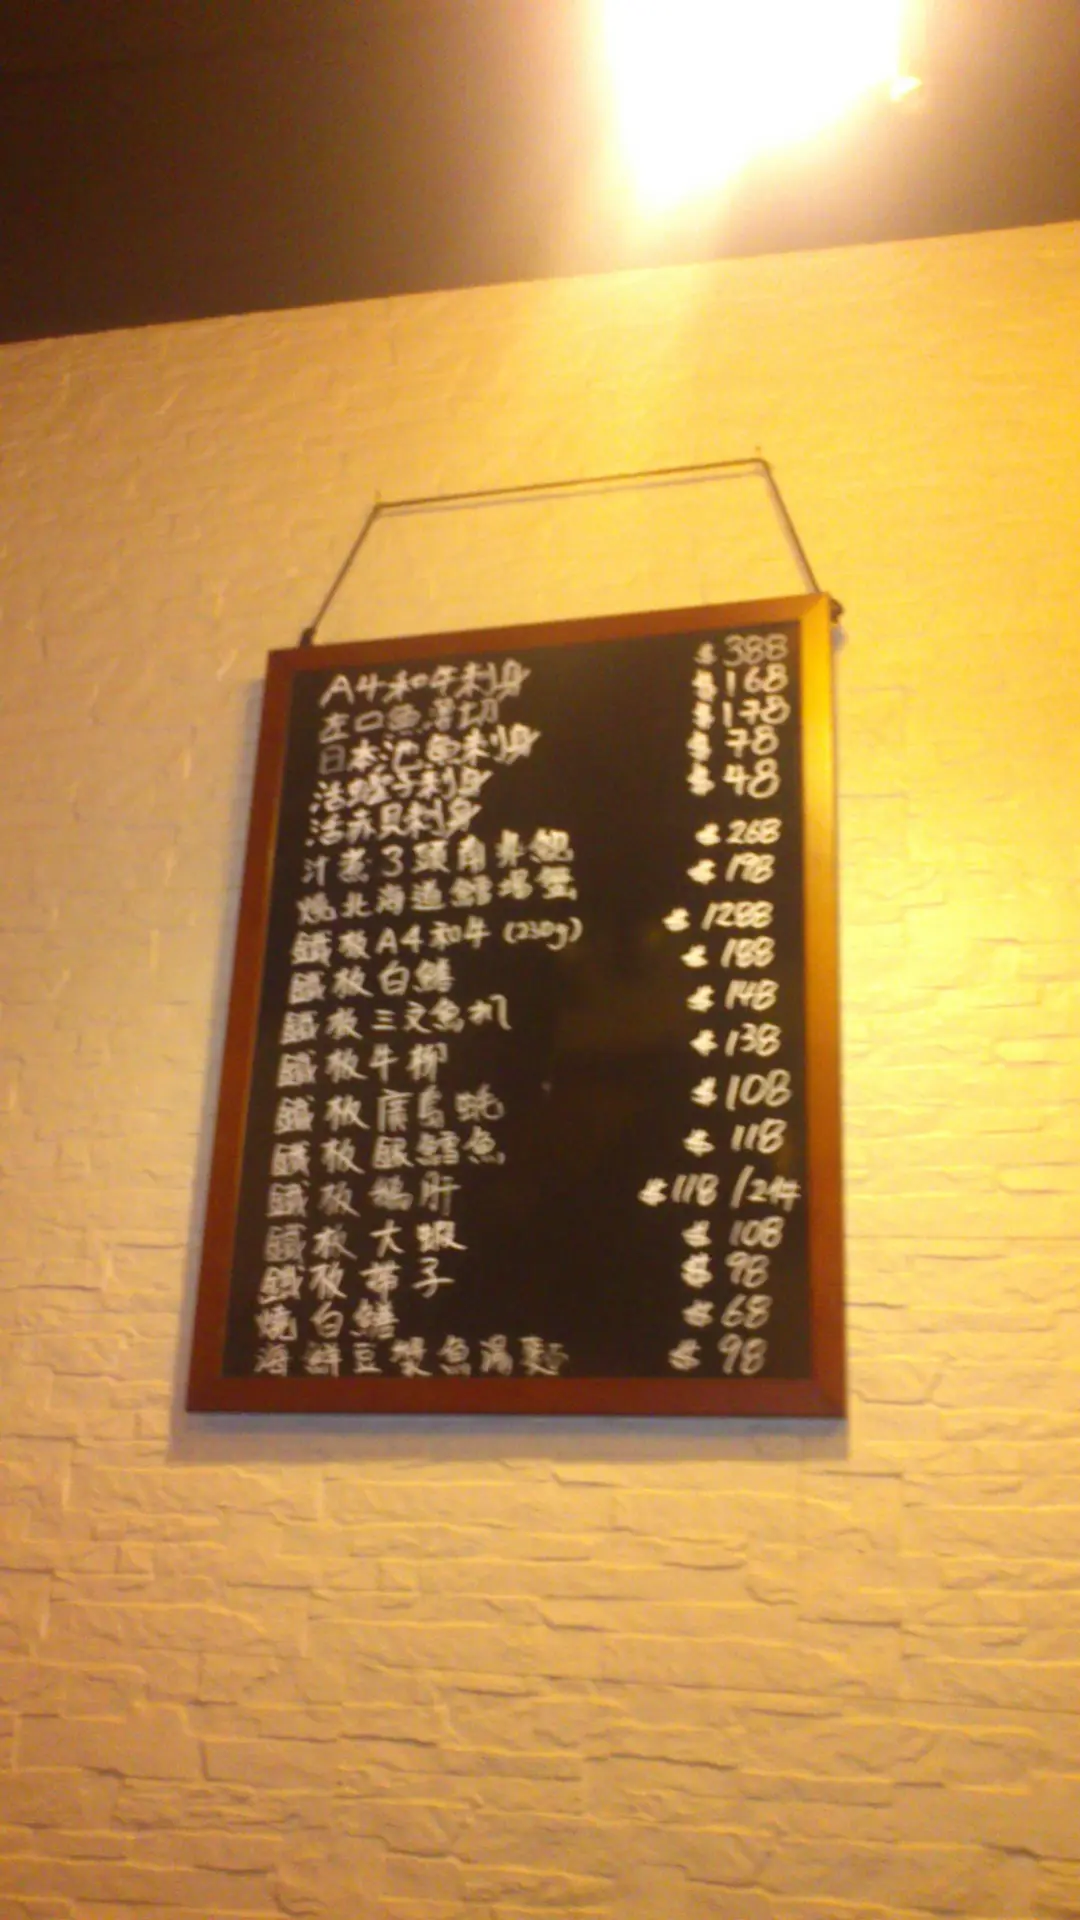 A4和牛刺身 $388
左口魚薄切 $168
日本池魚刺身 $178
活蟶子刺身 $78
活赤貝刺身 $48
汁煮3頭南非鮑 $268
燒北海道鱈場蟹 $198
鐵板A4和牛 (230g) $1288
鐵板白鱔 $188
鐵板三文魚扒 $148
鐵板牛柳 $138
鐵板廣島蠔 $108
鐵板銀鱈魚 $118
鐵板鵝肝 $118/2件
鐵板大蝦 $108
鐵板帶子 $98
燒白鱔 $68
海鮮豆漿魚湯麵 $98